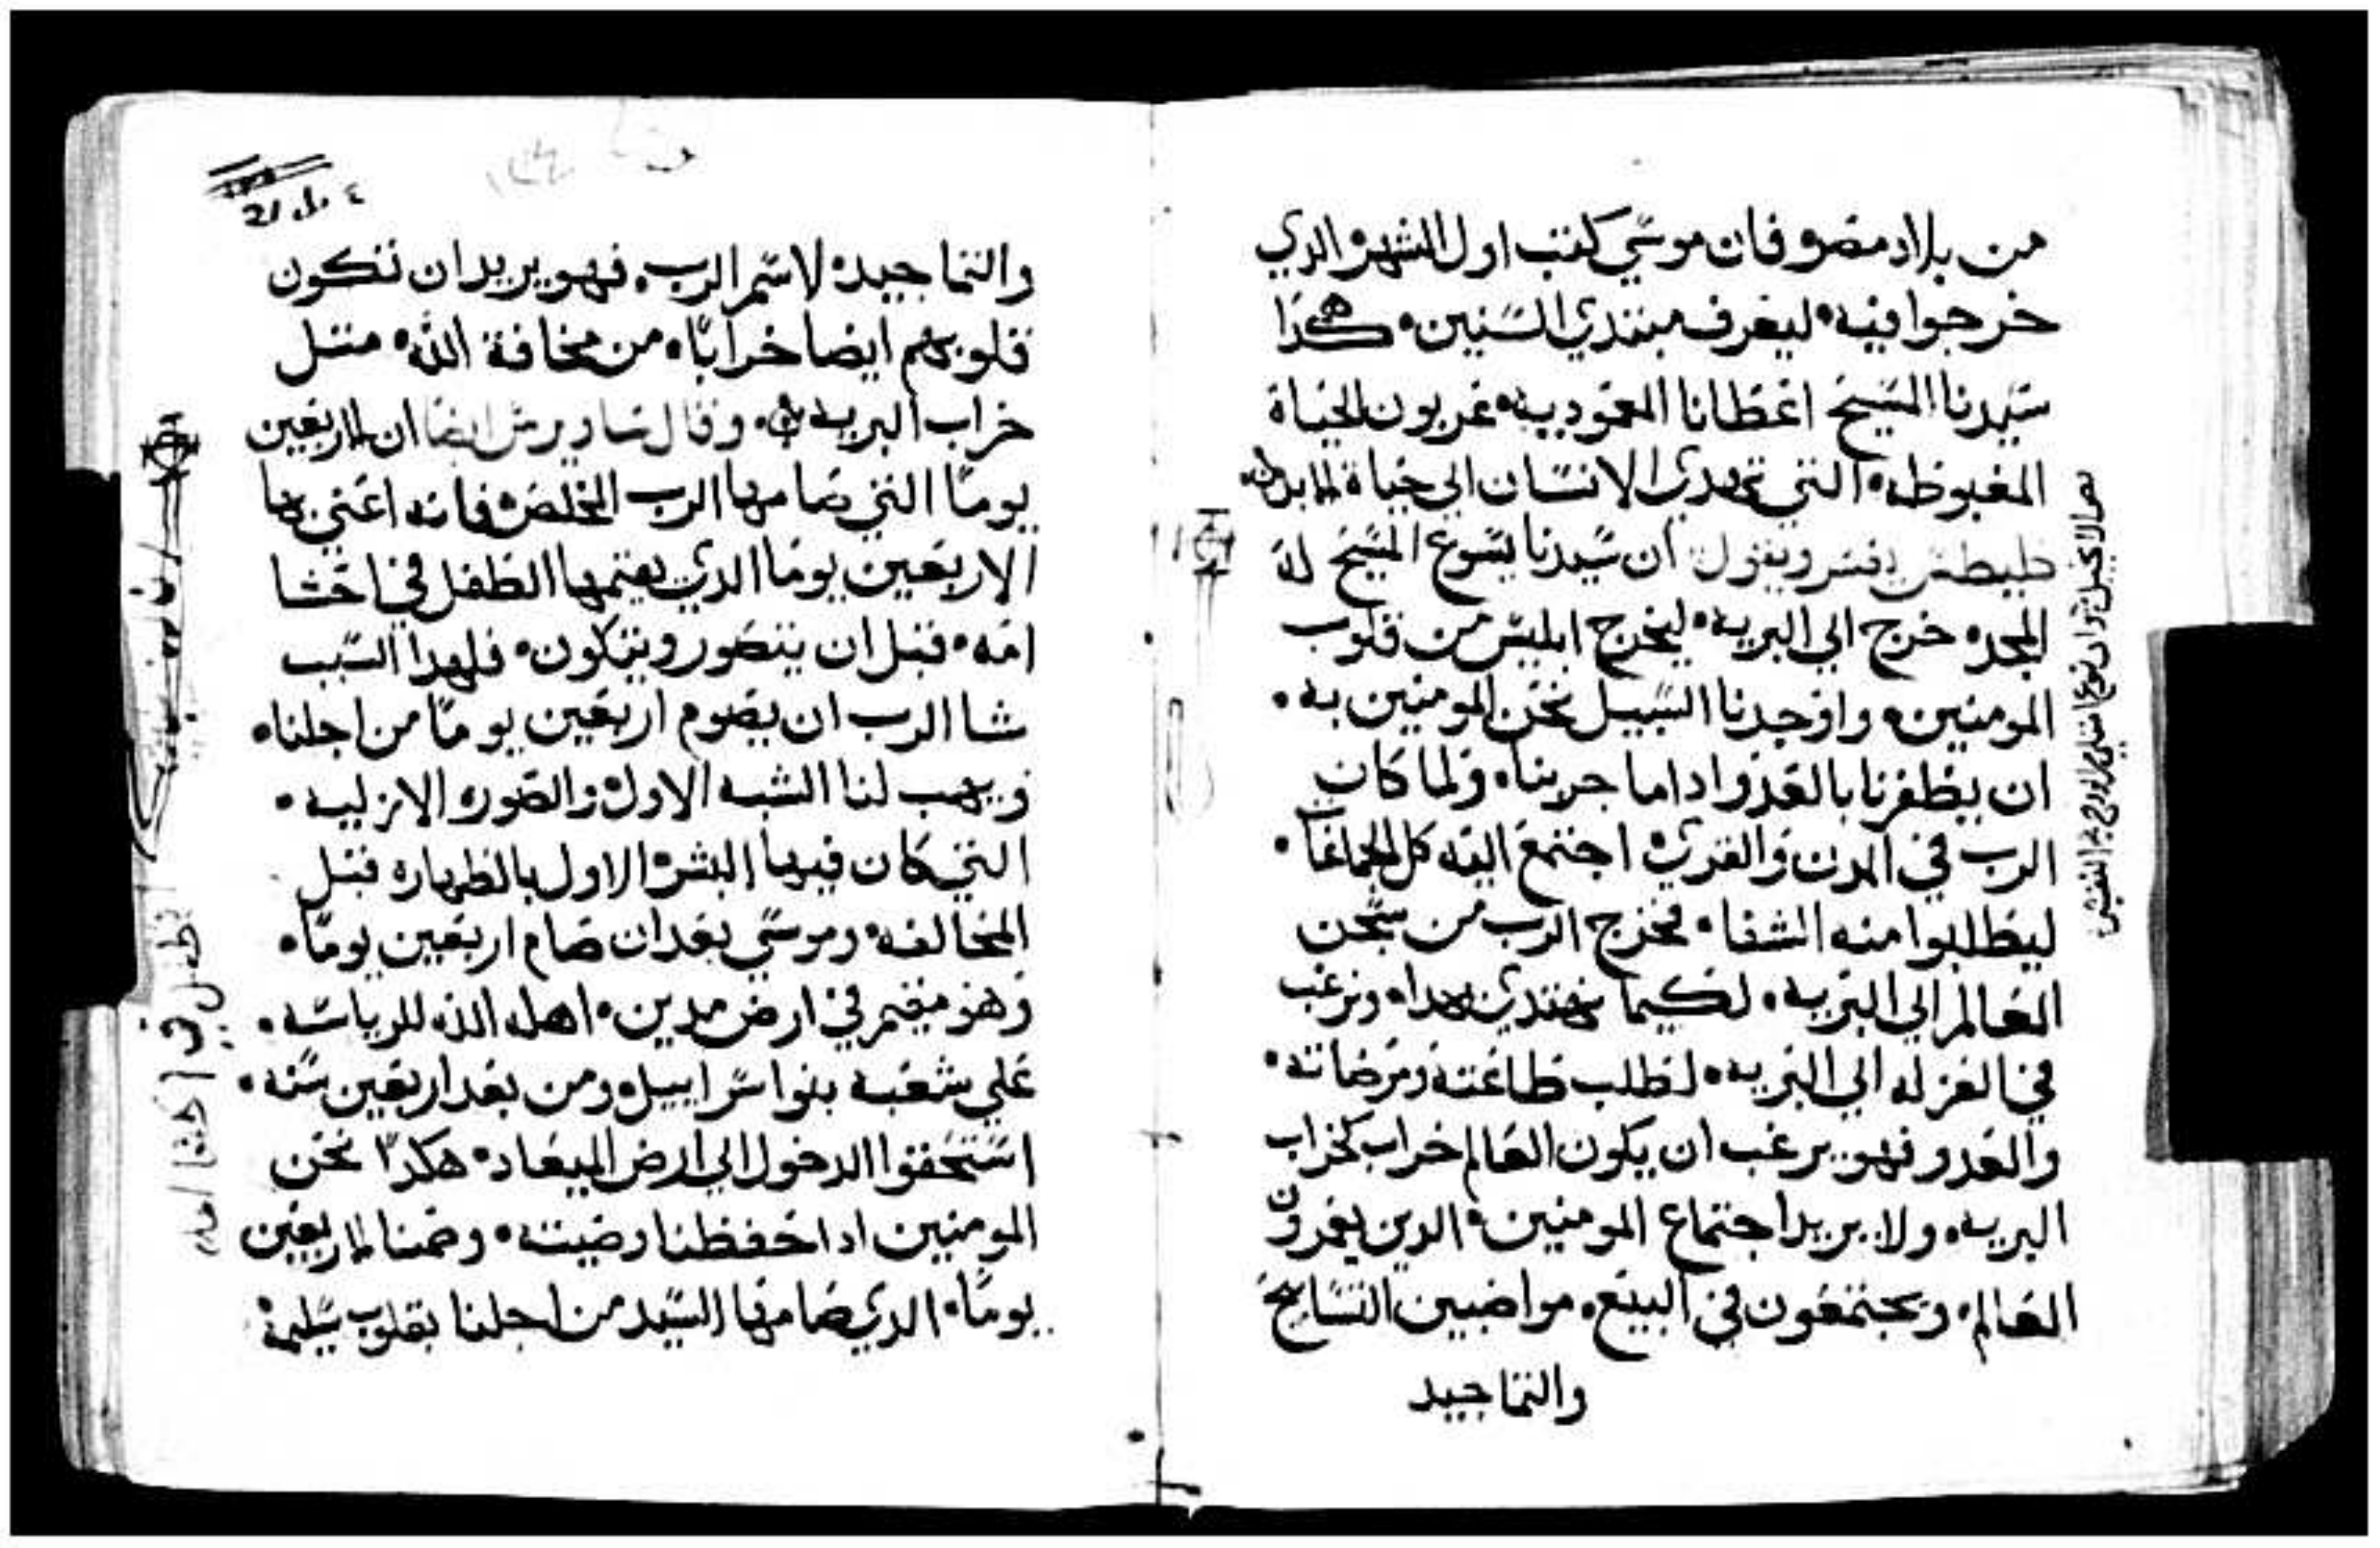 من بلاد مصر وفان موسي كتب اول الشهر الدي
خرجوا فيه ليعرف مبتدي السنين هكدا
سيدنا المسيح اعطانا العموديه عربون الحياة
المغبوطه التي تهدي الانسان الي حياة الابد
طيطس يفسر ويقول ان سيدنا يسوع المسيح له
المجد خرج الي البريه ليخرج ابليس من قلوب
المومنين واوجدنا السبيل نحن المومنين به
ان يظفرنا بالعدو ادا ما جربنا ولما كان
الرب في المدن والقري اجتمع اليه كل الجماعا
ليطلبوا منه الشفا فخرج الرب من سجن
العالم الي البريه لكيما نهتدي بهداه ونرغب
في العزله الي البريه لطلب طاعته ومرضاته
والعدو فهو يرغب ان يكون العالم خراب كخراب
البريه ولا يريد اجتماع المومنين الدين يعمرون
العالم ويجتمعون في البيع مواضبين التسابيح
والتماجيد
والتماجيد لاسم الرب فهو يريد ان تكون
قلوبهم ايضا خرابا من مخافة الله متل
خراب البريه وقال ساويرس ايضا ان الاربعين
يوما التي صامها الرب المخلص فانه اعني بها
الاربعين يوما الدي يتمها الطفل في احشا
امه قبل ان يتصور ويتكون فلهدا السبب
شا الرب ان يصوم اربعين يوما من اجلنا
ويهب لنا الشبه الاول والصوره الازليه
التي كان فيها البشر الاول بالطهاره قبل
المخالفه وموسي بعد ان صام اربعين يوما
وهو مقيم في ارض مدين اهله الله للرياسه
علي شعبه بنو اسراييل ومن بعد اربعين سنه
استحقوا الدخول الي ارض الميعاد هكدا نحن
المومنين ادا حفظنا وصيته وصمنا الاربعين
يوما الدي صامها السيد من اجلنا بقلوب سليمة
الطفل في احشا امه